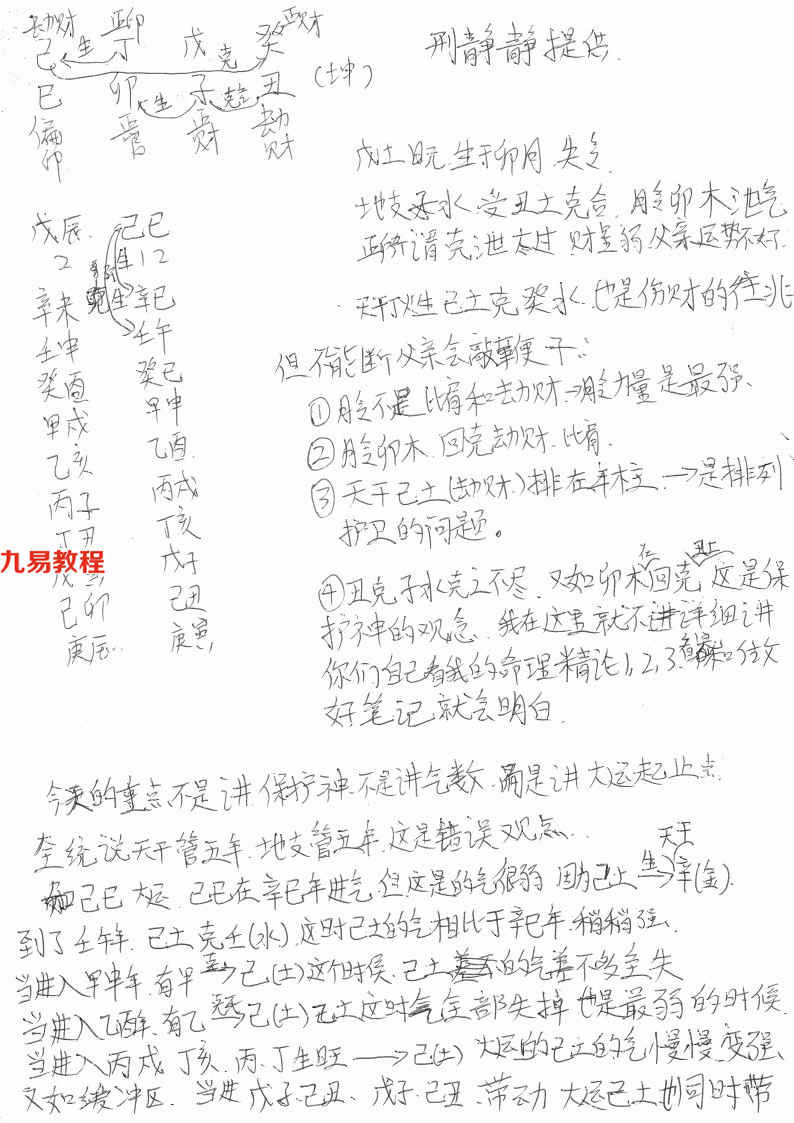 劫财 正印 正财
己 生 丁 戊 克 癸
巳 卯 生 子 克合 丑 (坤)
偏印 正官 正财 劫财
邢静静提供.
戊土日元.生于卯月.失令
地支子水.受丑土克合.月令卯木泄气
克泄太过.财星弱.父亲运势不好.
天干丁火生己土克癸水.也是伤财的征兆
但不能断父亲会敲鞭子:
①月令不是比肩和劫财→月令力量是最强、
②月令卯木.回克劫财.比肩.
③天干己土(劫财)排在年柱.→是排列
护卫的问题。
④丑克子水克之不尽.又如卯木在回克丑土.这是保
护神的观念.我在这里就不进详细讲
你们自己看我的命理精论1,2,3.做
好笔记.就会明白.
戊辰. 己巳
2 生12
辛未 克生 辛巳
壬申 壬午
癸酉 癸巳
甲戌 甲申
乙亥 乙酉
丙子 丙戌
丁丑 丁亥
九易教程
戊 戊子
己卯 己丑
庚辰. 庚寅
今天的重点不是讲.保护神.不是讲气数.而是讲大运起止点.
传统说天干管五年.地支管五年.这是错误观点..
如己巳大运.己巳在辛巳年进气.但这是的气很弱.因为己土生→天干辛(金).
到了壬午年.己土克壬(水).这时己土的气相比于辛巳年.稍稍强.
当进入甲申年.有甲克→己(土)这个时候.己土的气差不多全失
当进入乙酉年.有乙克→己(土)己土这时气全部失掉也是最弱的时候.
当进入丙戌.丁亥.丙.丁生旺→己(土)大运的己土的气慢慢变强、
又如缓冲区.当进戊子.己丑.戊子.己丑.带动大运己土也同时带